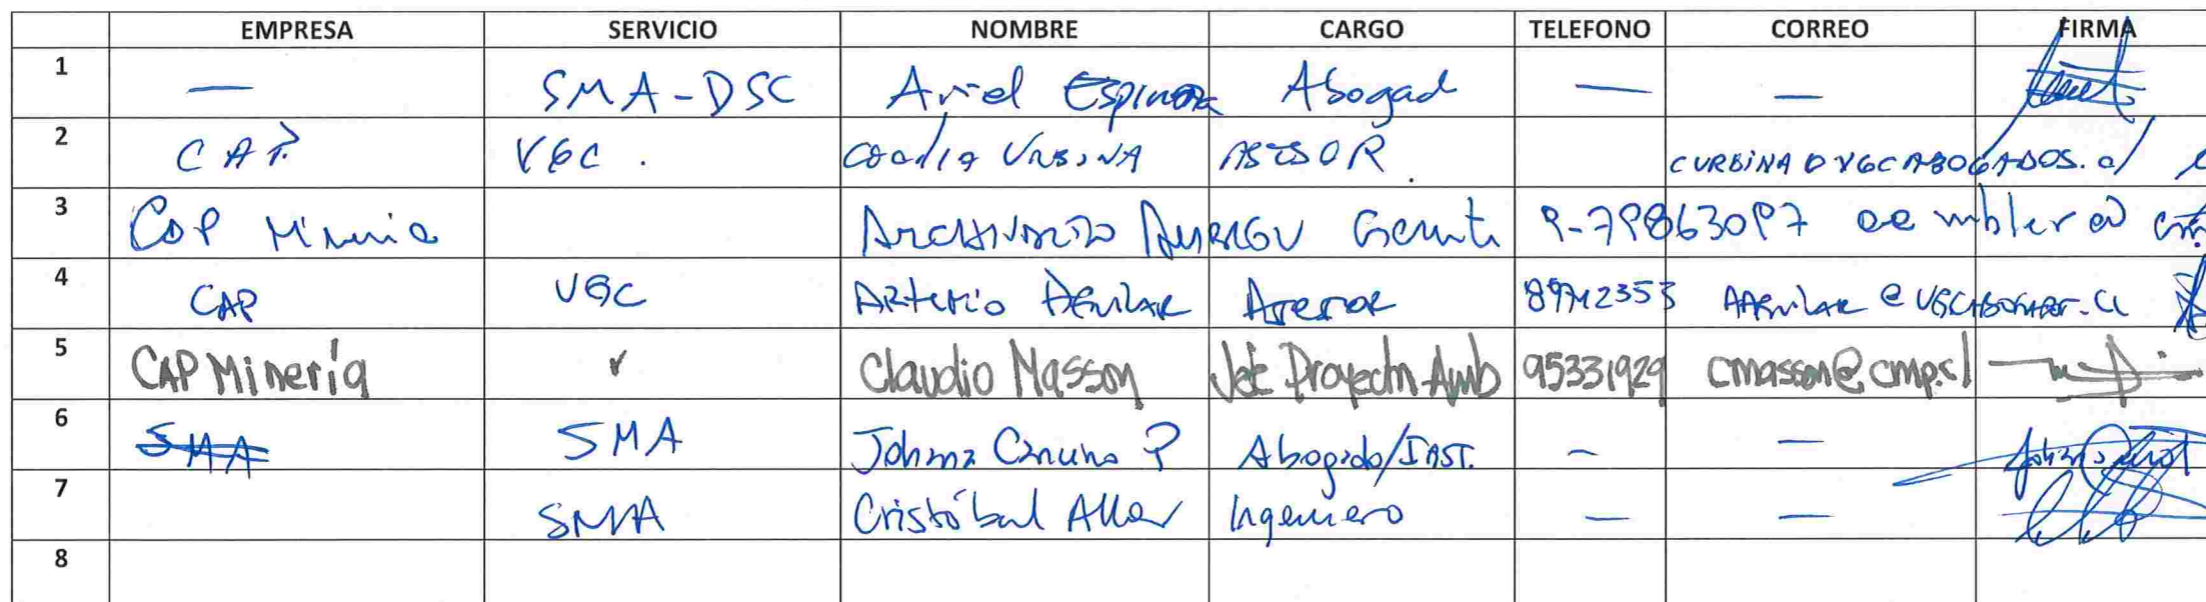 EMPRESA SERVICIO NOMBRE CARGO TELEFONO CORREO FIRMA
1 — SMA-DSC Ariel Espinoza Abogad — —
2 CAP. VGC. URBINA ASESOR. CURBINA@VGCABOGADOS.cl
3 CAP Mineria Gerente 9-79863097
4 CAP VGC Arturio Aguilar Asesor 89712353 AAguilar@VGCABOGADOS.CL
5 CAP Minería ✓ Claudio Masson Jefe Proyecto Amb 95331929 cmasson@cmp.cl
6 SMA SMA Abogado/INST. - —
7 SMA Cristóbal Ingeniero — —
8